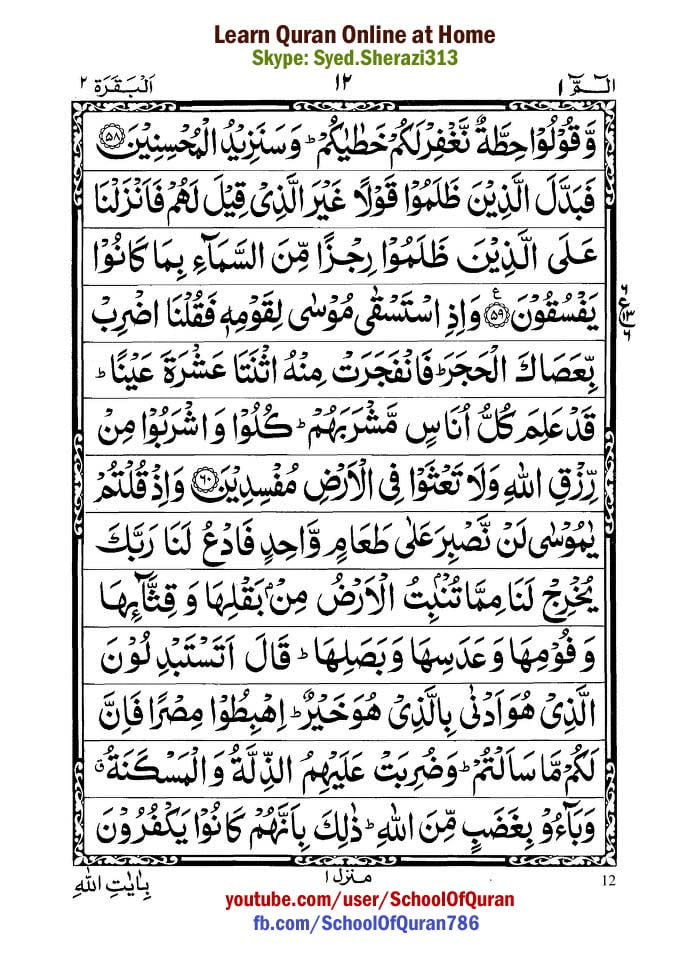 Learn Quran Online at Home
Skype: Syed.Sherazi313
الٓمّٓ ١ ١٢ اَلْبَقَرَة ٢
وَّقُوْلُوْا حِطَّةٌ نَّغْفِرْ لَكُمْ خَطٰيٰكُمْ ؕ وَسَنَزِيْدُ الْمُحْسِنِيْنَ ۝۵۸
فَبَدَّلَ الَّذِيْنَ ظَلَمُوْا قَوْلًا غَيْرَ الَّذِيْ قِيْلَ لَهُمْ فَاَنْزَلْنَا
عَلَى الَّذِيْنَ ظَلَمُوْا رِجْزًا مِّنَ السَّمَآءِ بِمَا كَانُوْا
يَفْسُقُوْنَ ۝۵۹ ع وَاِذِ اسْتَسْقٰى مُوْسٰى لِقَوْمِهٖ فَقُلْنَا اضْرِبْ
٦ ع ١٣ ٦
بِّعَصَاكَ الْحَجَرَ ؕ فَانْفَجَرَتْ مِنْهُ اثْنَتَا عَشْرَةَ عَيْنًا ؕ
قَدْ عَلِمَ كُلُّ اُنَاسٍ مَّشْرَبَهُمْ ؕ كُلُوْا وَاشْرَبُوْا مِنْ
رِّزْقِ اللّٰهِ وَلَا تَعْثَوْا فِى الْاَرْضِ مُفْسِدِيْنَ ۝۶۰ وَاِذْ قُلْتُمْ
يٰمُوْسٰى لَنْ نَّصْبِرَ عَلٰى طَعَامٍ وَّاحِدٍ فَادْعُ لَنَا رَبَّكَ
يُخْرِجْ لَنَا مِمَّا تُنْۢبِتُ الْاَرْضُ مِنْۢ بَقْلِهَا وَقِثَّآئِهَا
وَفُوْمِهَا وَعَدَسِهَا وَبَصَلِهَا ؕ قَالَ اَتَسْتَبْدِلُوْنَ
الَّذِيْ هُوَ اَدْنٰى بِالَّذِيْ هُوَ خَيْرٌ ؕ اِهْبِطُوْا مِصْرًا فَاِنَّ
لَكُمْ مَّا سَاَلْتُمْ ؕ وَضُرِبَتْ عَلَيْهِمُ الذِّلَّةُ وَالْمَسْكَنَةُ ۗ
وَبَآءُوْ بِغَضَبٍ مِّنَ اللّٰهِ ؕ ذٰلِكَ بِاَنَّهُمْ كَانُوْا يَكْفُرُوْنَ
بِاٰيٰتِ اللّٰهِ منزل ١ 12
youtube.com/user/SchoolOfQuran
fb.com/SchoolOfQuran786